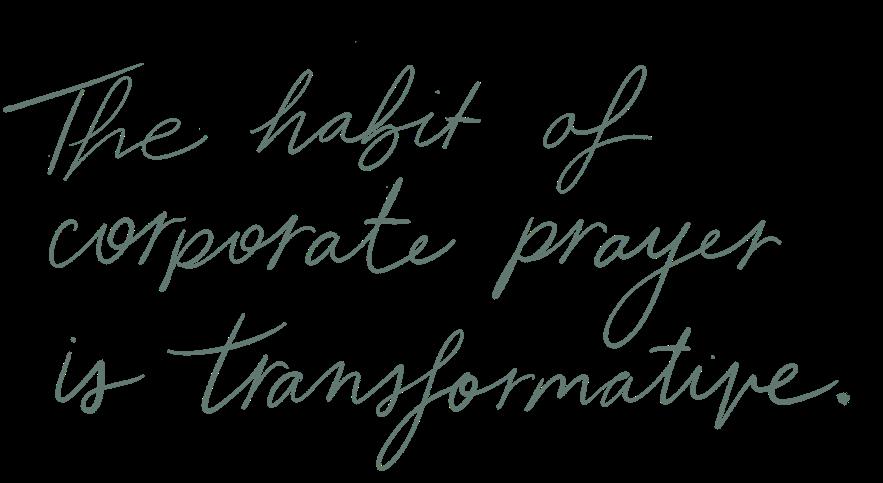 The habit of
corporate prayer
is transformative.